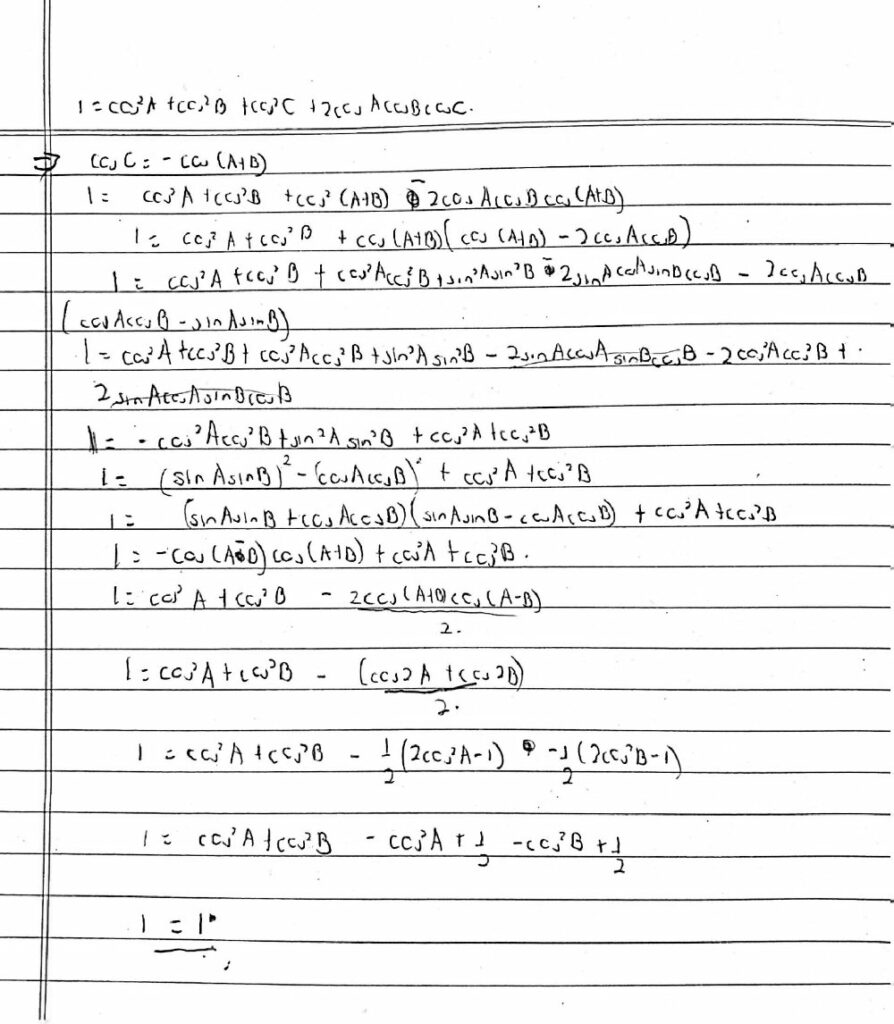 1 = cos²A + cos²B + cos²C + 2cos A cos B cos C.
⇒ cos C = - cos (A+B)
1 = cos²A + cos²B + cos² (A+B) - 2cos A cos B cos (A+B)
1 = cos²A + cos²B + cos (A+B) ( cos (A+B) - 2cos A cos B)
1 = cos²A + cos²B + cos²A cos²B + sin²A sin²B - 2 sin A cos A sin B cos B - 2cos A cos B
(cos A cos B - sin A sin B)
1 = cos²A + cos²B + cos²A cos²B + sin²A sin²B - 2 sin A cos A sin B cos B - 2cos²A cos²B +
2 sin A cos A sin B cos B
1 = - cos²A cos²B + sin²A sin²B + cos²A + cos²B
1 = (sin A sin B)² - (cos A cos B)² + cos²A + cos²B
1 = (sin A sin B + cos A cos B)(sin A sin B - cos A cos B) + cos²A + cos²B
1 = - cos (A-B) cos (A+B) + cos²A + cos²B.
1 = cos²A + cos²B - 2cos (A+B) cos (A-B)
2.
1 = cos²A + cos²B - (cos 2A + cos 2B)
2.
1 = cos²A + cos²B - 1/2 (2cos²A - 1) - 1/2 (2cos²B - 1)
1 = cos²A + cos²B - cos²A + 1/2 - cos²B + 1/2
1 = 1